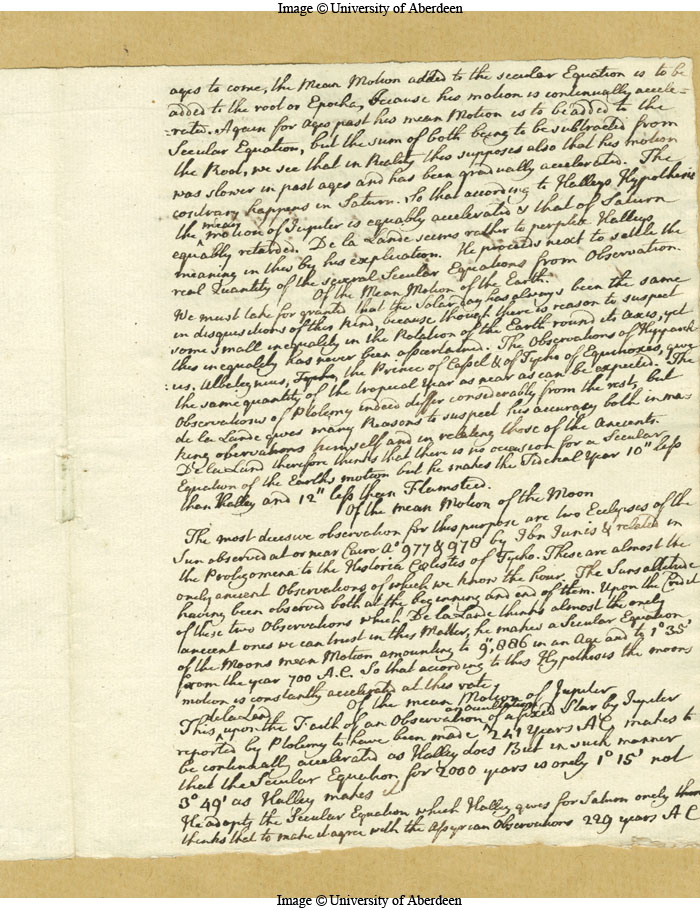 Image © University of Aberdeen
ages to come, the Mean Motion added to the secular Equation is to be
added to the root or Epocha, because his motion is continually accele=
=rated. Again for Ages past his mean Motion is to be added to the
Secular Equation, but the sum of both being to be subtracted from
the Root, we see that in Reality this supposes also that his motion
was slower in past ages and has been gradually accelerated. The
contrary happens in Saturn. So that according to Halleys Hypothesis
the mean motion of Jupiter is equably accelerated & that of Saturn
equably retarded. De la Lande seems rather to perplex Halleys
meaning in this by his explication. He proceeds next to settle the
real Quantity of the several Secular Equations from Observation.
Of the Mean Motion of the Earth.
We must take for granted that the Solar day has always been the same
in disquisitions of this kind, because though there is reason to suspect
some small inequality in the Rotation of the Earth round its axis, yet
this inequality has never been ascertained. The Observations of Hypparch
=us, Albategnius, Tycho, the Prince of Cassel & of Tycho of Equinoxes, give
the same quantity of the tropical Year as near as can be expected. The
Observations of Ptolemy indeed differ considerably from the rest, but
de la Lande gives many Reasons to suspect his accuracy both in ma=
king obervations himself and in relating those of the Ancients.
De la Land therefore thinks that there is no occasion for a Secular
Equation of the Earths motion but he makes the Siderial Year 10" less
than Halley and 12" less than Flamsted.
Of the mean Motion of the Moon
The most decisive observation for this purpose are two Ecclipses of the
Sun observed at or near Cairo Ao 977 & 978 by Ibn Iunis & related in
the Prolegomena to the Historia Cœlestis of Tycho. These are almost the
onely ancient Observations of which we know the hour, The Suns altitude
having been observed both at the beginning and end of them. Upon the Credit
of these two Observations which De la Lande thinks almost the onely
ancient ones we can trust in this Matter, he makes a Secular Equation
of the Moons mean Motion amounting to 9",886 in an Age and to 1° 35'
from the year 700 A.C. So that according to this Hypothesis the moons
motion is constantly accelerated at this rate,
Of the mean Motion of Jupiter
This de la Land upon the Faith of an Observation of an occultation of a fixed Star by Jupiter
reported by Ptolemy to have been made 241 Years A C, makes to
be continually accelerated as Halley does But in such manner
that the Secular Equation for 2000 years is onely 1° 15' not
3° 49' as Halley makes it
He adapts the Secular Equation which Halley gives for Saturn onely
thinks that to make it agree with the Assyrian Observations 229 years A C
Image © University of Aberdeen